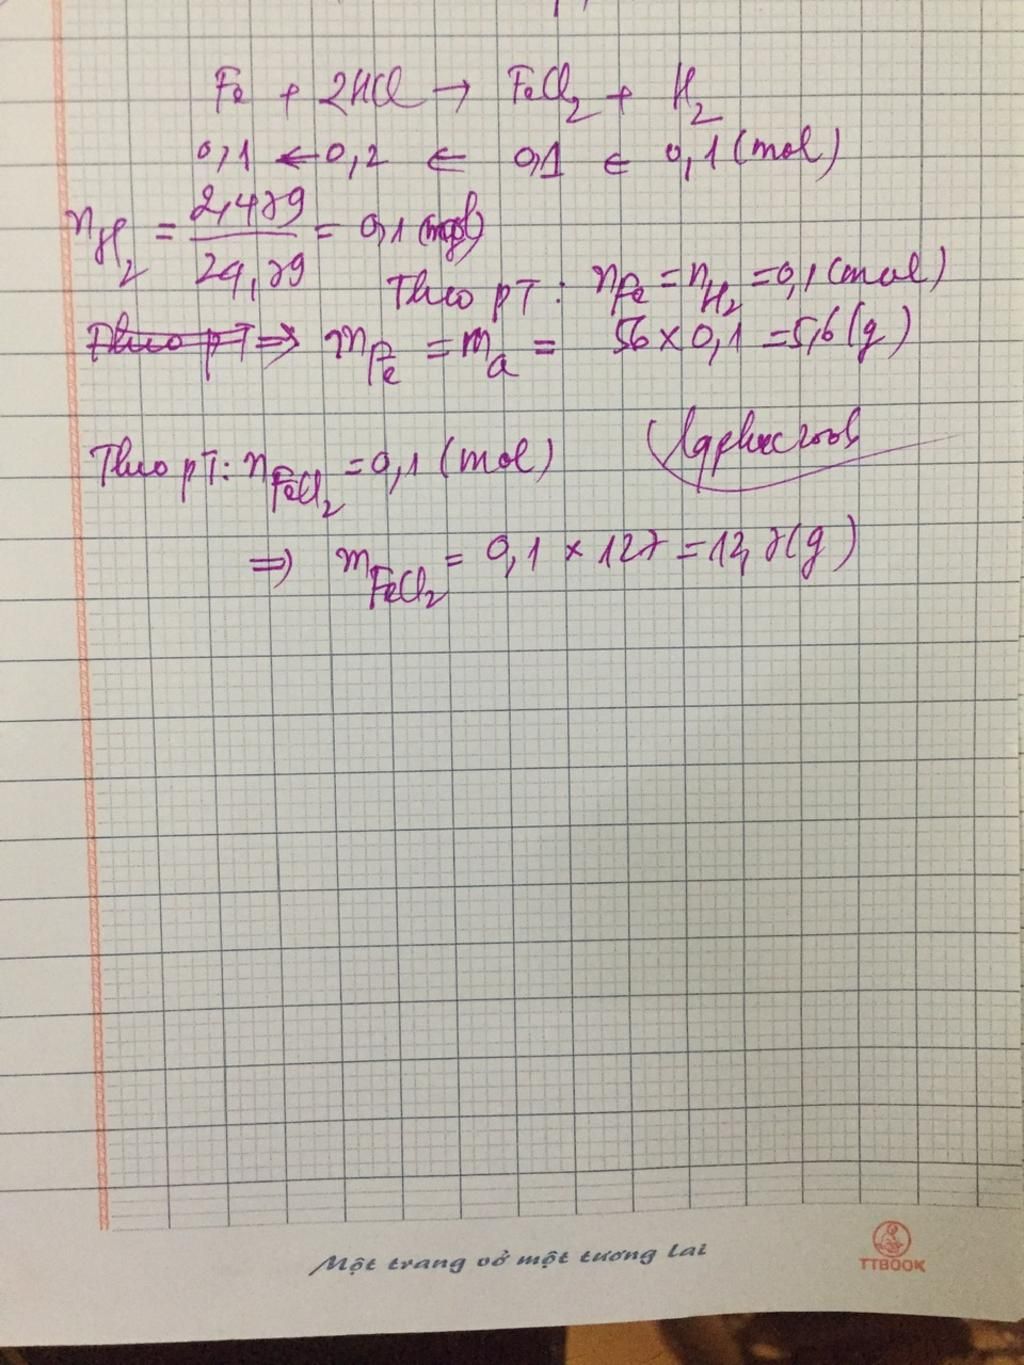 Fe + 2HCl → FeCl2 + H2
0,1 ← 0,2 ← 0,1 ← 0,1 (mol)
nH2 = 2,479/24,79 = 0,1 (mol)
Theo pT: nFe = nH2 = 0,1 (mol)
Theo pT ⇒ mFe = ma = 56 × 0,1 = 5,6 (g)
Theo pT: nFeCl2 = 0,1 (mol)
⇒ mFeCl2 = 0,1 × 127 = 12,7 (g)
Một trang vở một tương lai
TTBOOK